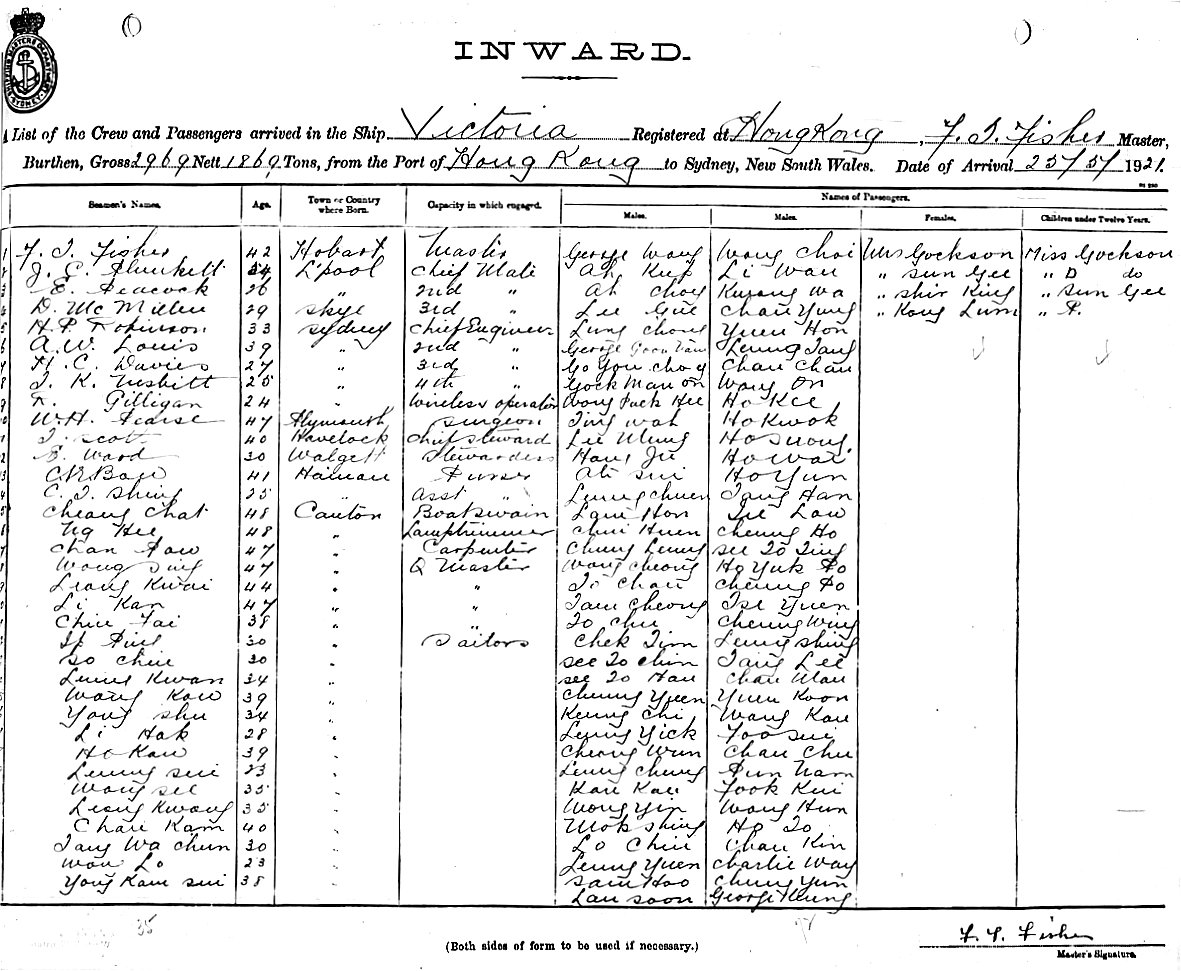 INWARD.
List of the Crew and Passengers arrived in the Ship Victoria Registered at Hong Kong, F. T. Fisher Master,
Burthen, Gross 2969 Nett 1869 Tons, from the Port of Hong Kong to Sydney, New South Wales. Date of Arrival 25/5/1921.
Names of Passengers.
Seamen's Names. Age. Town or Country where Born. Capacity in which engaged. Males. Males. Females. Children under Twelve Years.
1 F. T. Fisher 42 Hobart Master George Wong Wong Choi Mrs Gockson Miss Gockson
J. E. Plunkett L'pool Chief Mate Ah Kup Li Wan " Sun Gee " D do
E. Peacock 26 " 2nd " Ah Choy Kwong Wa " Shir King " Sun Gee
D. McMillen 29 Skye 3rd " Lee Gue Chan Yung " Kong Lum " P.
5 H. P. Robinson 33 Sydney Chief Engineer Lung Chong Yuen Hon
6 A. W. Louis 39 " 2nd " George Goon Leung Tang
7 H. C. Davies 27 " 3rd " Go You Choy Chan Chan
8 T. K. Nesbitt 25 " 4th " Gock Man On Wong On
9 Gilligan 24 " Wireless operator Wong Puck Hee Ho Kee
W. H. Pearse 47 Plymouth Surgeon Ting Wah Ho Kwok
T. Scott 40 Havelock Chief Steward Lee Mung Ho Suong
E. Ward 30 Walgett Stewardess Hang Ju Ho Wai
C. R. Bau 41 Hainan Purser Ah Sui Ho Yun
C. T. Shing 25 " Asst " Leung Chuen Tang Han
Cheong Chat 48 Canton Boatswain Lam Hon Low
Ng Hee 48 " Lamptrimmer Chui Huen Cheung Ho
Chan Pow 47 " Carpenter Chung Leung See To Ting
Wong Sing 47 " Q Master Wong Cheong Ho Yuk Po
Leong Kwai 44 " " To Chan Cheung Po
Li Kan 47 " " Tam Cheong Tse Yuen
Chiu Tai 38 " " To Chu Cheung Wing
Ip Ping 30 " Sailors Chek Tim Leung Shing
So Chiu 30 " See To Chim Tang Lee
Leung Kwan 34 " See To Han Chan Man
Wong Kow 39 " Cheung Yuen Yuen Koon
Yong Shu 34 " Keung Chi Wong Kau
Li Hak 28 " Leung Yick Foo Sui
Ho Kau 39 " Cheong Wun Chan Chu
Leung Sui 23 " Leung Chung Pun Nam
Wong See 35 " Kau Kau Fook Kui
Leong Kwong 35 " Wong Yin Wong Hun
Chau Kam 40 " Mok Shing Ho To
Tang Wa Chun 30 " Lo Chiu Chan Kin
Wou Lo 23 " Leung Yuen Charlie Way
Yong Kam Sui 38 " Sam Hoo Chung Yun
Lau Soon George Keung
35
(Both sides of form to be used if necessary.)
F. T. Fisher
Master's Signature.